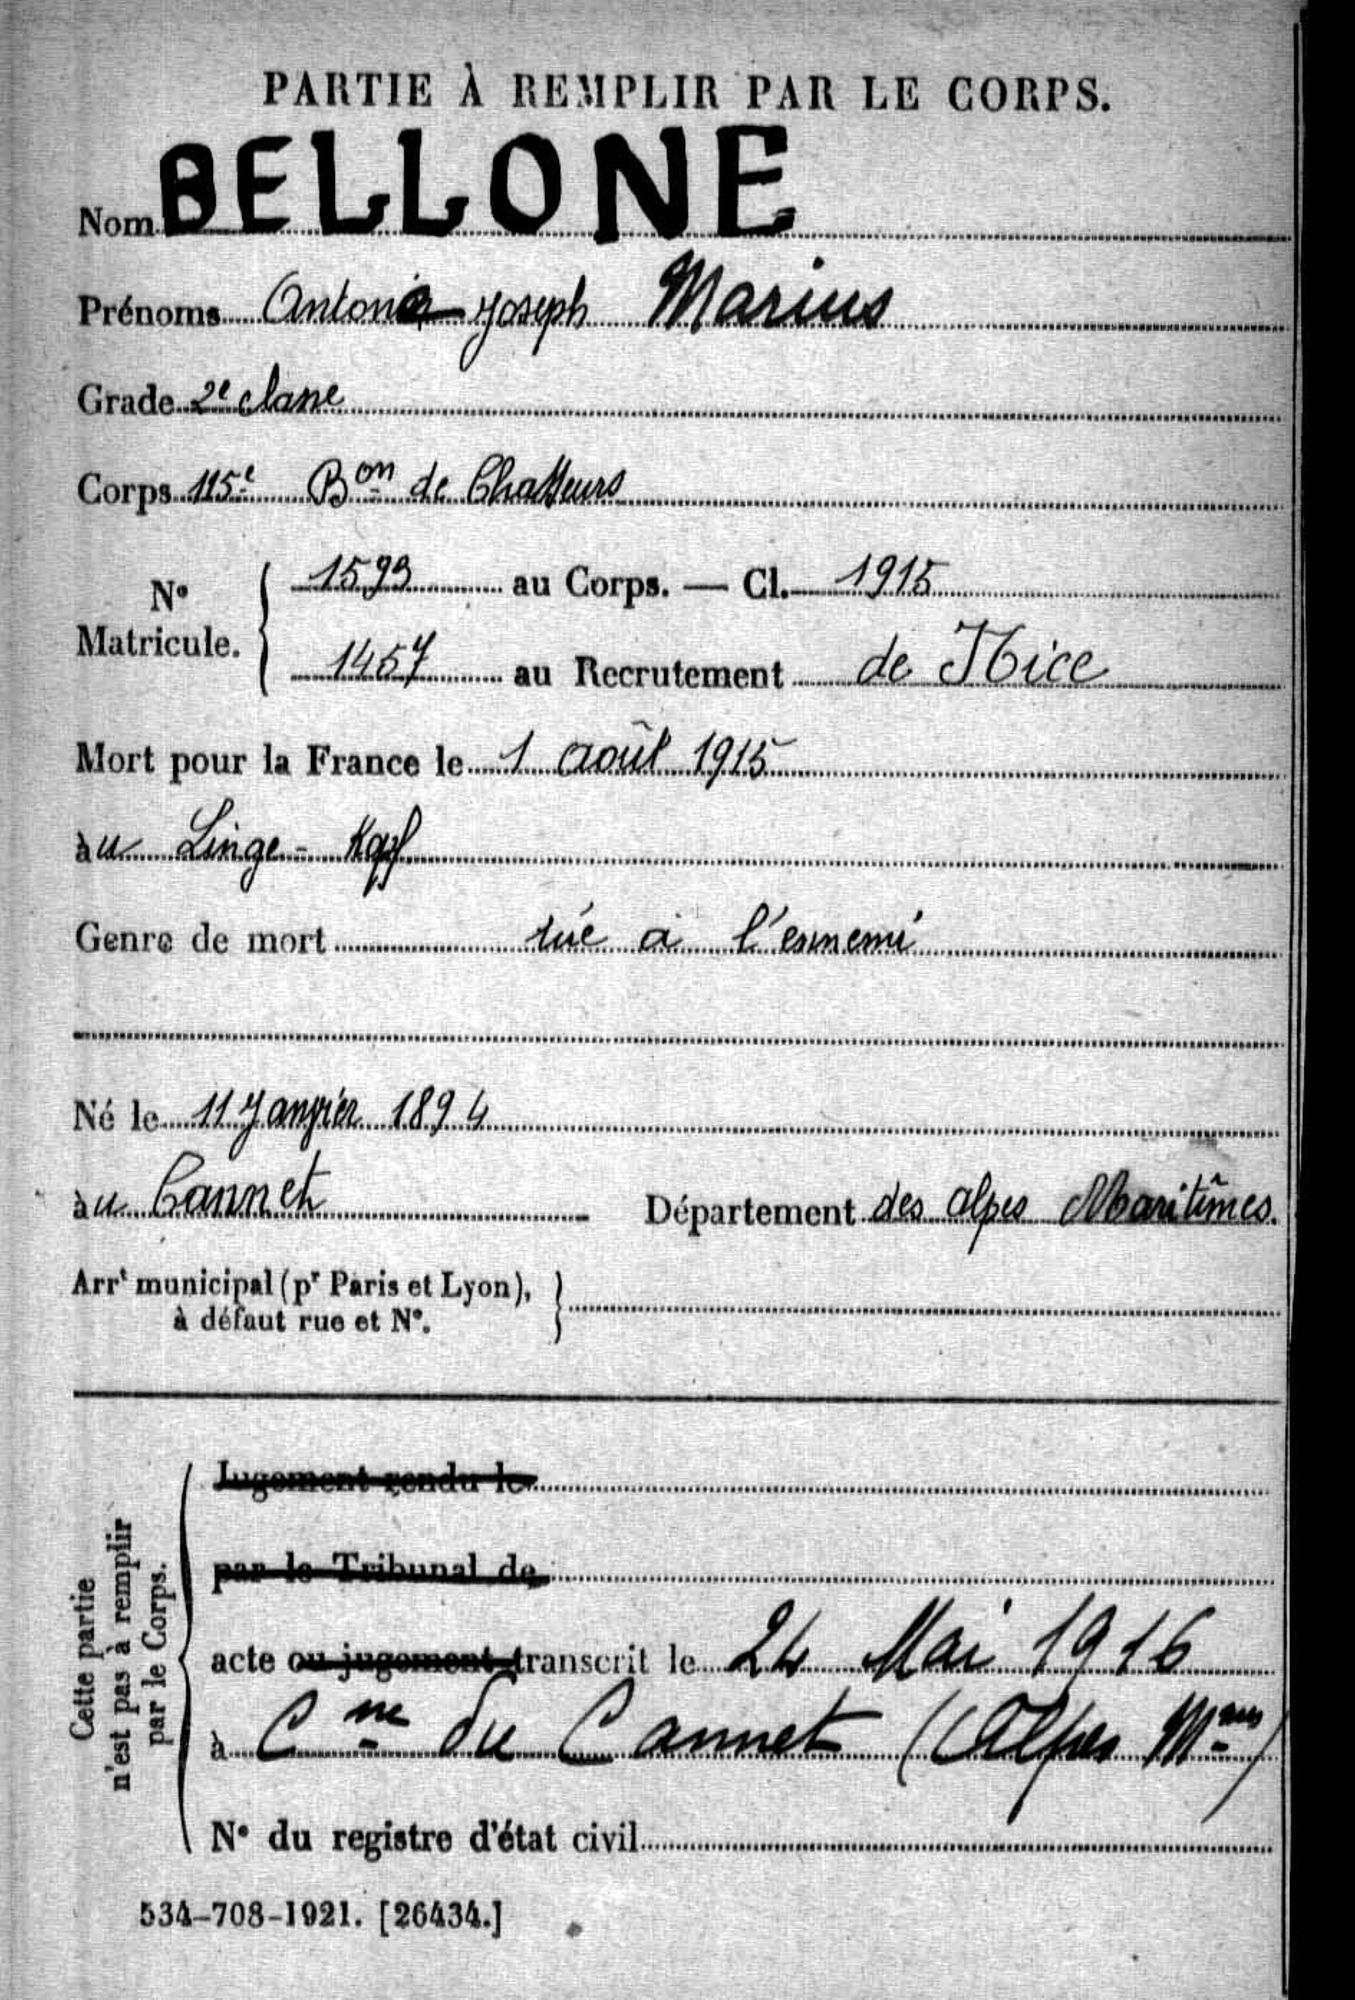 PARTIE À REMPLIR PAR LE CORPS.
Nom BELLONE
Prénoms Antonin Joseph Marius
Grade 2e classe
Corps 115e Bon de Chasseurs
No Matricule. 1593 au Corps. — Cl. 1915
1457 au Recrutement de Nice
Mort pour la France le 1 août 1915
au Linge - Kopf
Genre de mort tué a l'ennemi
Né le 11 Janvier 1894
au Cannet Département des alpes Maritîmes.
Arrt municipal (pr Paris et Lyon),
à défaut rue et No.
Cette partie
n'est pas à remplir
par le Corps.
Jugement rendu le
par le Tribunal de
acte ou jugement transcrit le 24 Mai 1916
à Cne du Cannet (Alpes Mmes)
No du registre d'état civil
534-708-1921. [26434.]